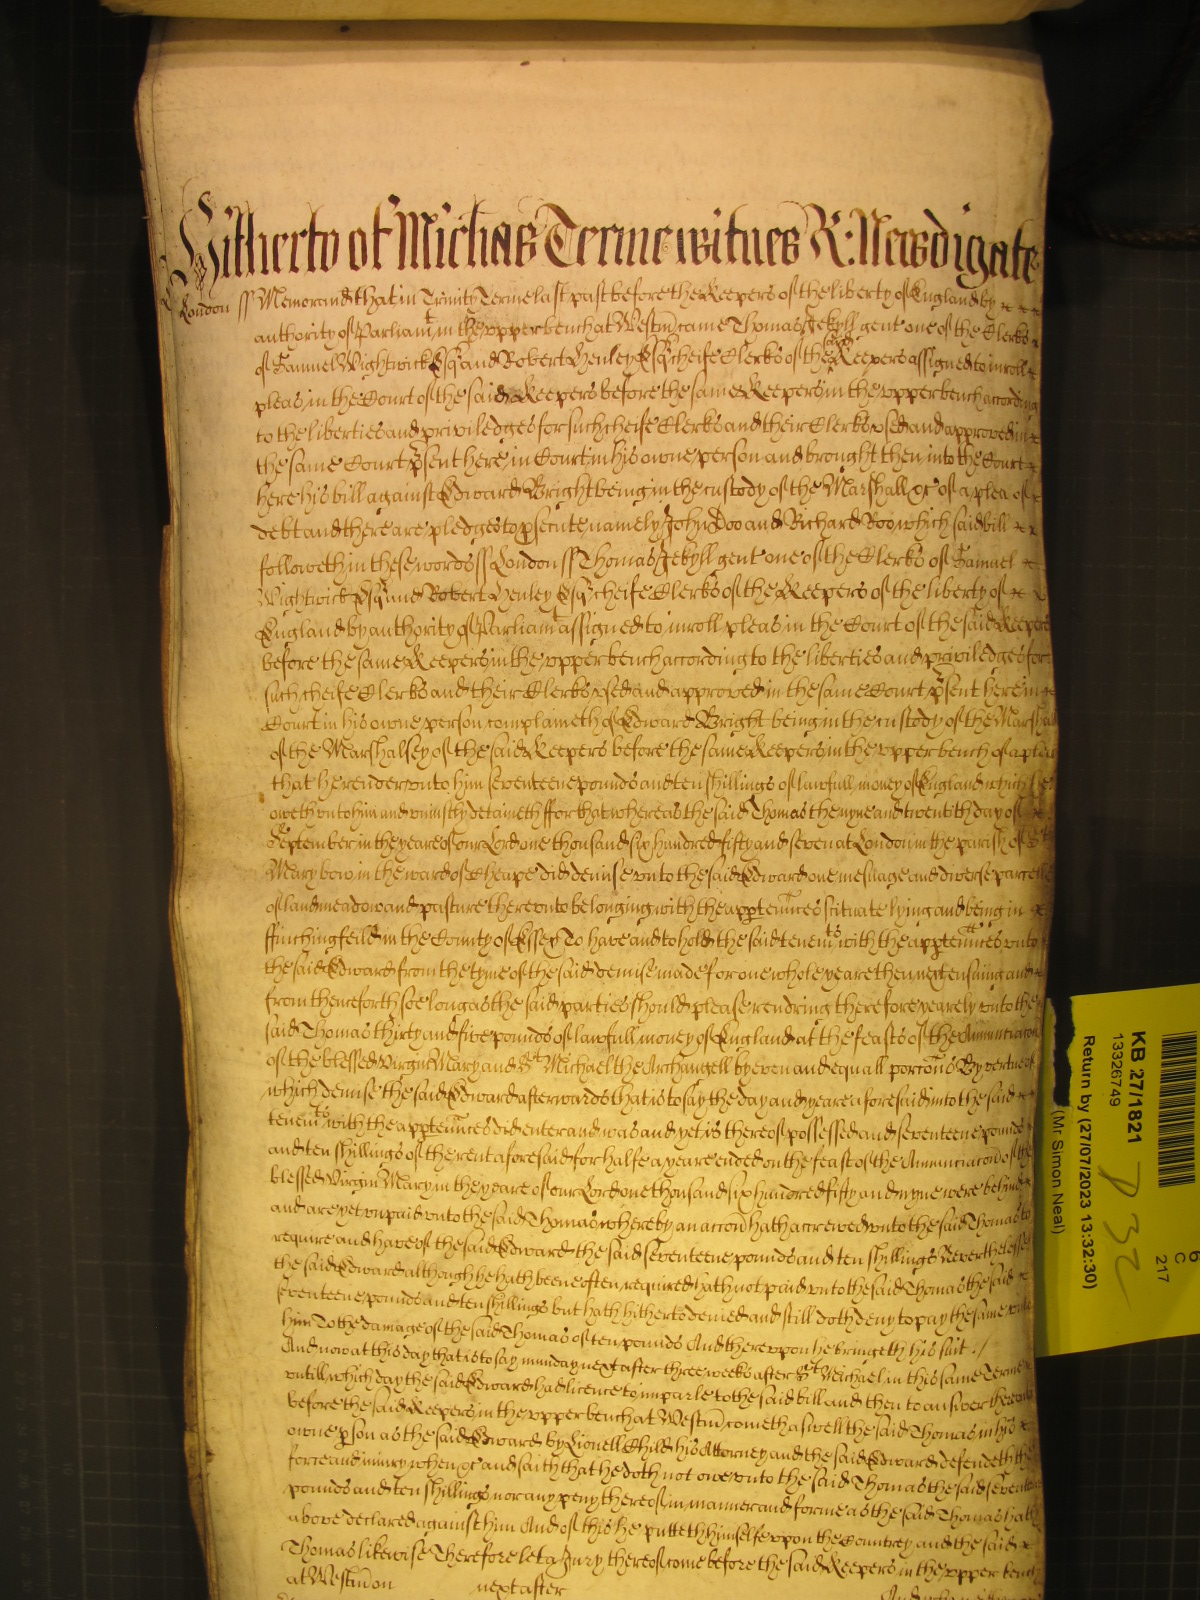 Hitherto of Michas Terme witnes R: Newdigate
London ss Memorand that in Trinity Terme last past before the Keepers of the liberty of England by
authority of Parliamt in the upper bench at Westm came Thomas Jekyll gent one of the Clerks
of Samuel Wightwick Esq and Robert Henley Esq cheife Clerks of the said Keepers assigned to inroll
pleas in the Court of the said Keepers before the same Keepers in the upper bench according
to the liberties and priviledges for such cheife Clerks and their Clerks used and approved in
the same Court psent here in Court in his owne person and brought then into the Court
here his bill against Edward Bright being in the custody of the Marshall &c of a plea of
debt and there are pledges to psecute namely John Doo and Richard Roo which said bill
followeth in these words ss London ss Thomas Jekyll gent one of the Clerks of Samuel
Wightwick Esq and Robert Henley Esq cheife Clerks of the Keepers of the liberty of
England by authority of Parliamt assigned to inroll pleas in the Court of the said Keepers
before the same Keepers in the upper bench according to the liberties and priviledges for
such cheife Clerks and their Clerks used and approved in the same Court psent here in
Court in his owne person complaineth of Edward Bright being in the custody of the Marshall
of the Marshalsey of the said Keepers before the same Keepers in the upper bench of a plea
that he render unto him seventeene pounds and ten shillings of lawfull money of England which he
oweth unto him and uniustly detaineth ffor that whereas the said Thomas the nyne and twentith day of
September in the yeare of our Lord one thousand six hundred fifty and seven at London in the parish of
Mary bow in the ward of Cheape did demise unto the said Edward one mesuage and diverse parcells
of land meadow and pasture thereunto belonging with the apptennces scituate lying and being in
ffinchingfeild in the County of Essex To have and to hold the said tenemts with the apptennces unto
the said Edward from the tyme of the said demise made for one whole yeare then next ensuing and
from thenceforth soe long as the said parties should please rendring therefore yearely unto the
said Thomas thirty and five pounds of lawfull money of England at the feasts of the Annunciacon
of the blessed Virgin Mary and St Michael the Archangell by even and equall porcons By vertue of
which demise the said Edward afterwards that is to say the day and yeare aforesaid into the said
tenemts with the apptennces did enter and was and yet is thereof possessed and seventeene pounds
and ten shillings of the rent aforesaid for halfe a yeare ended on the feast of the Annunciacon of the
blessed Virgin Mary in the yeare of our Lord one thousand six hundred fifty and nyne were behind
and are yet unpaid unto the said Thomas whereby an accon hath accrewed unto the said Thomas to
require and have of the said Edward the said seventeene pounds and ten shillings Neverthelesse
the said Edward although he hath beene often required hath not paid unto the said Thomas the said
seventeene pounds and ten shillings but hath hitherto denied and still doth deny to pay the same unto
him To the damage of the said Thomas of ten pounds And thereupon he bringeth his suit
And now at this day that is to say munday next after three weeks after St Michael in this same Terme
untill which day the said Edward had licence to imparle to the said bill and then to answer thereunto
before the said Keepers in the upper bench at Westm cometh aswell the said Thomas in his
owne pson as the said Edward by Lionell Child his Attorney and the said Edward defendeth the
force and iniury when &c and saith that he doth not owe unto the said Thomas the said seventeene
pounds and ten shillings nor any peny thereof in manner and forme as the said Thomas hath
above declared against him And of this he putteth himselfe upon the Countrey and the said
Thomas likewise Therefore let a Jury thereof come before the said Keepers in the upper bench
at Westm on next after
KB 27/1821
13326749
Return by (27/07/2023 13:32:30)
(Mr. Simon Neal)
C
217